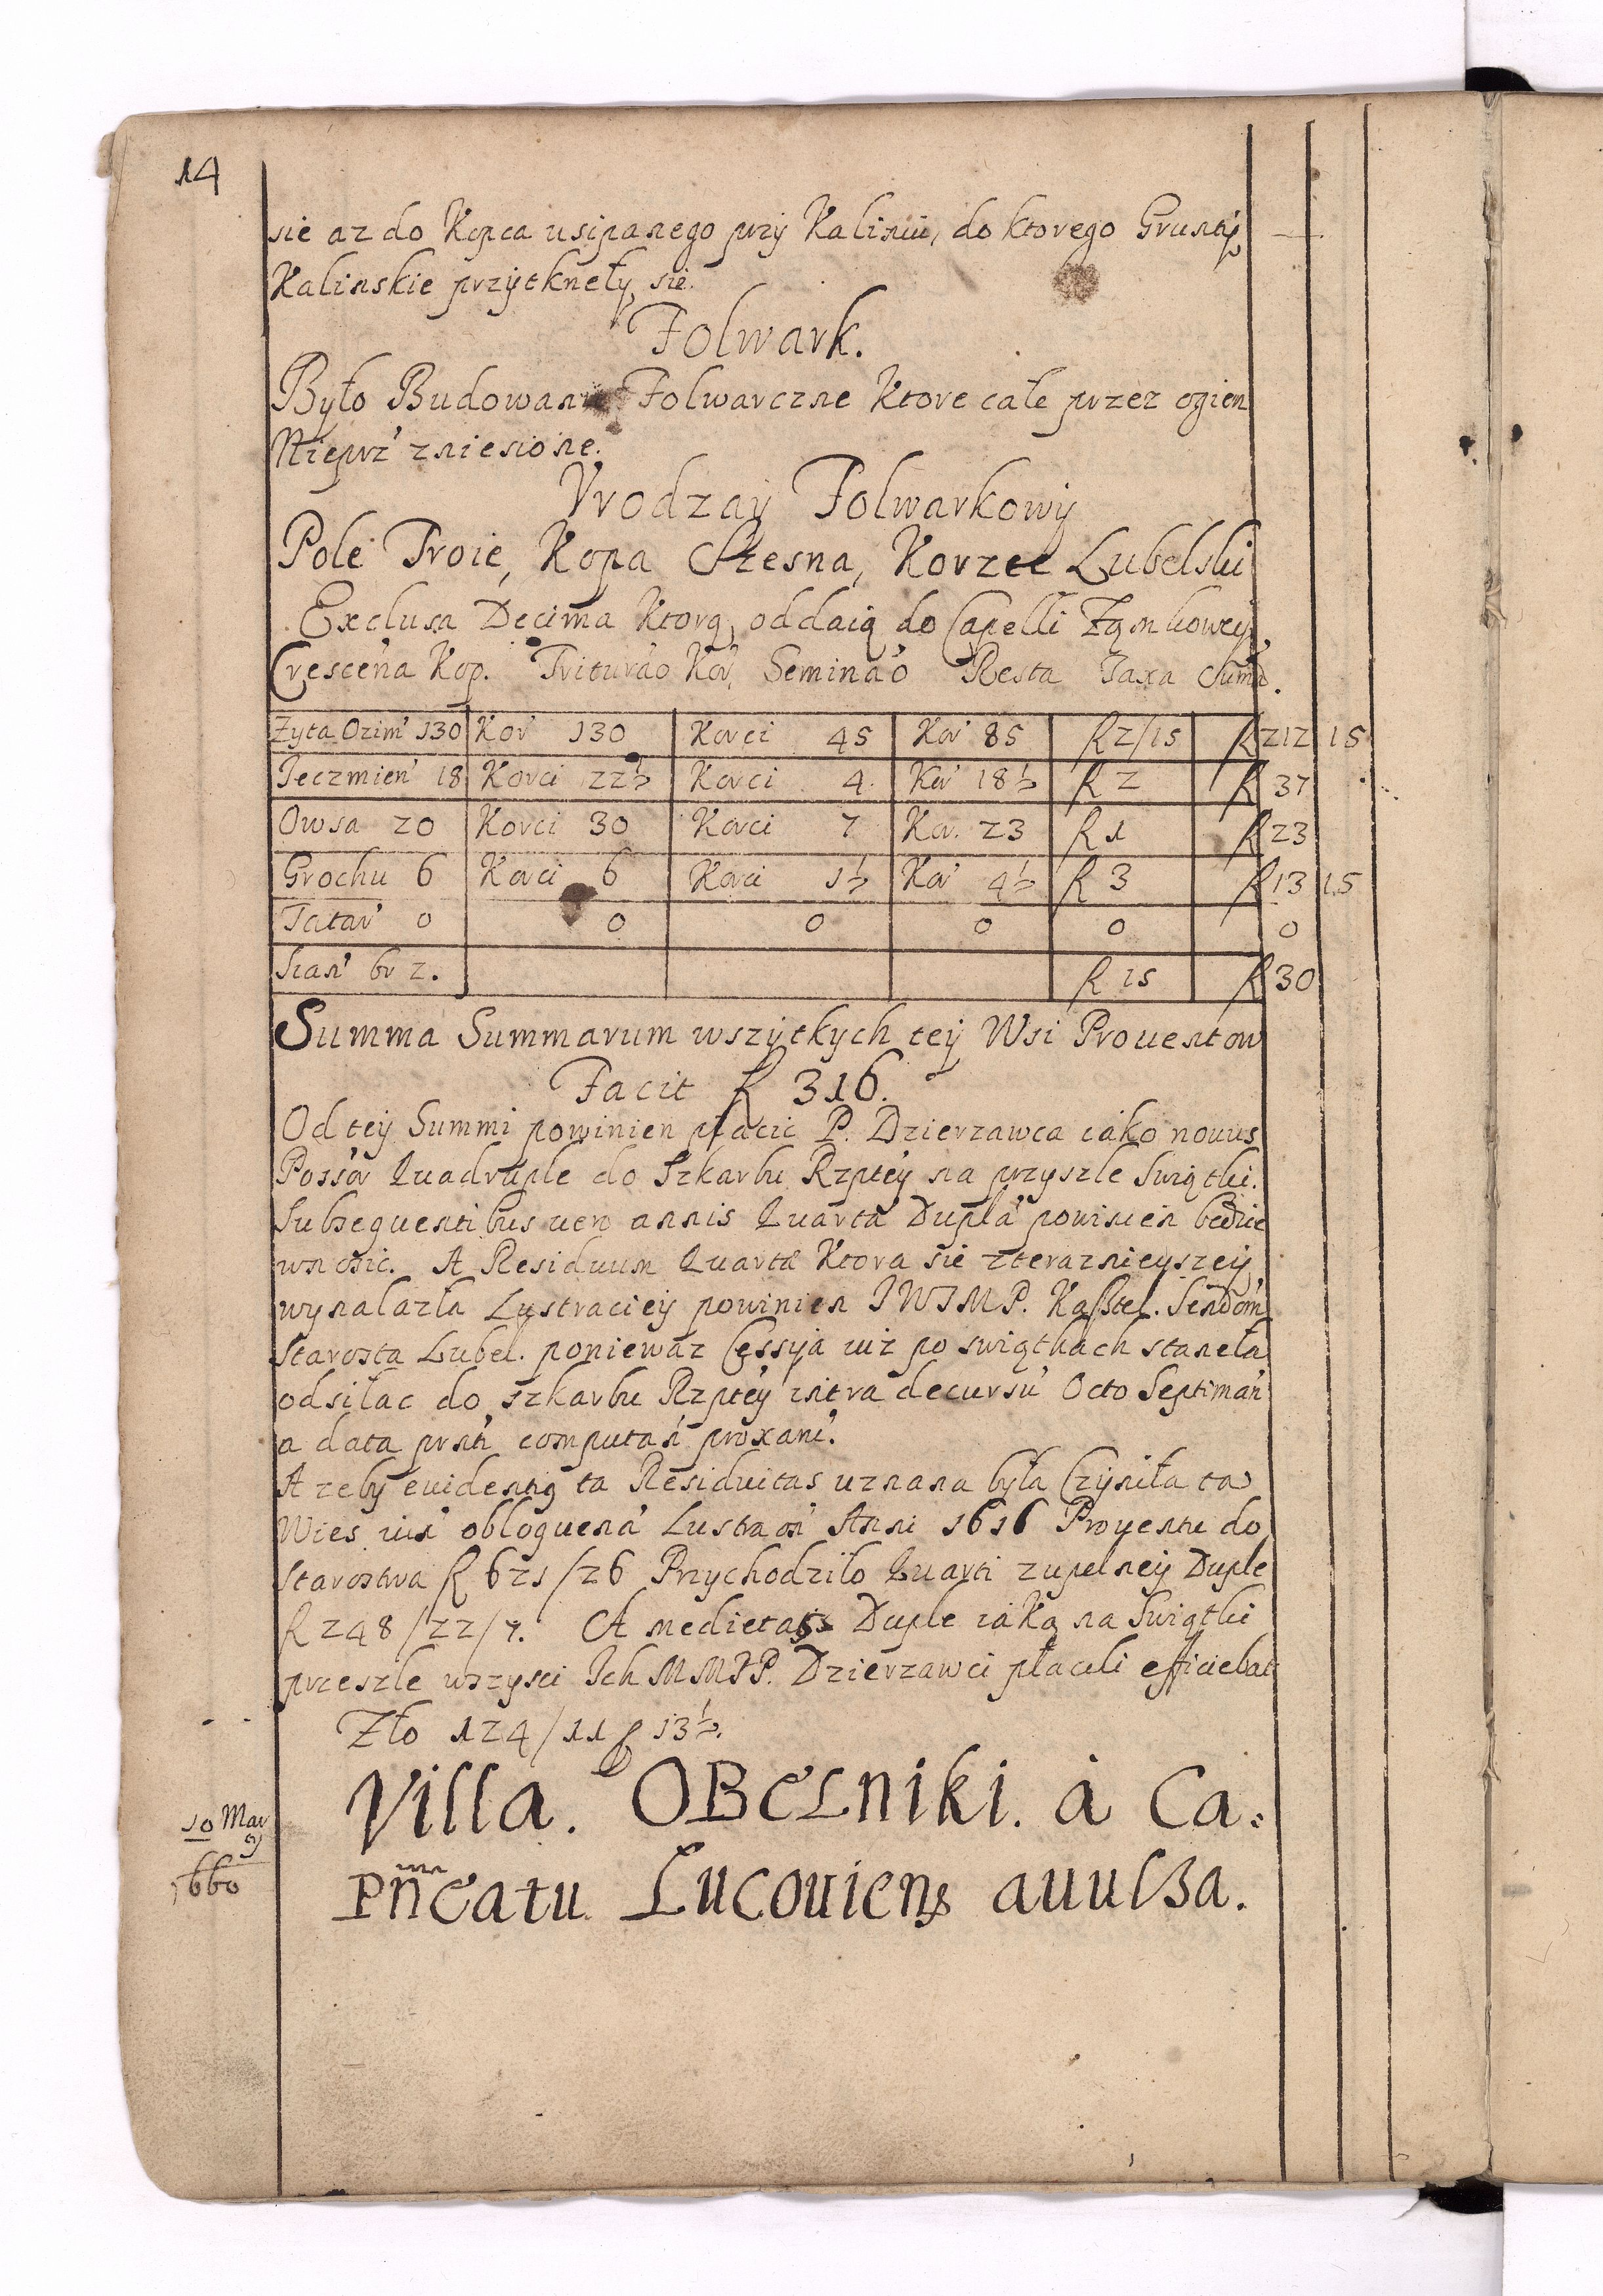 14
sie az do Kopca usipanego przy Kaliniu, do ktorego Grunty
Kalinskie przytknęły się.
Folwark.
Było Budowan Folwarczne Ktore całe przez ogien
Nieprz' zniesione.
Vrodzaÿ Folwarkowÿ
Pole Troie, Kopa Szesna, Korzec Lubelski
Exclusa Decima Ktorą oddaią do Capelli Zamkowey
Crescen'a Kop. Triturao Kor' Seminao Resta Taxa Sum'a.
Zyta Ozim' 130 Kor' 130 Korci 45 Kor' 85 f 2/15 f 212 15
Jeczmien' 18 Korci 22½ Korci 4. Kor' 18½ f 2 f 37
Owsa 20 Korci 30 Korci 7 Kor. 23 f 1 f 23
Grochu 6 Korci 6 Korci 1½ Kor' 4½ f 3 f 13 15
Tatar' 0 0 0 0 0 0
Sian' br 2. f 15 f 30
Summa Summarum wszytkych teÿ Wsi Prouentow
Facit f 316.
Od teÿ Summi powinien płacic P. Dzierzawca iako nouus
Poss'or Quadruple do Szkarbu Rzpteÿ na przyszłe Swiątki.
Subsequentibus uero annis Quarta Dupla powinien bedzie
wnosic. A Residuum Quartæ Ktora sie zterazniejszey
wynalazła Lustracieÿ powinien JWJMP. Kasztel. Sendom'
Starosta Lubel. poniewaz Cessyja iuz po swiątkach staneła
odsiłac do szkarbu Rzpteÿ intra decursu' Octo Septiman'
a data prnti' computan' proxam'.
A zeby euidentią ta Residuitas uznana była Czyniła ta
Wies iux' obloquena' Lustraon' Anni 1616 Prouentu do
Starostwa f 621/26 Przychodziło Quarti zupełneÿ Duple
f 248/22/7. A medietas Duple iaką na Swiątki
przeszłe wszysci Ich MMJP. Dzierzawci płacili efficiebat
Zło 124/11 ₰ 13½.
10 Mar
1660
Villa. OBELniki. à Ca:
Pn̅eatu Lucouiens auulsa.